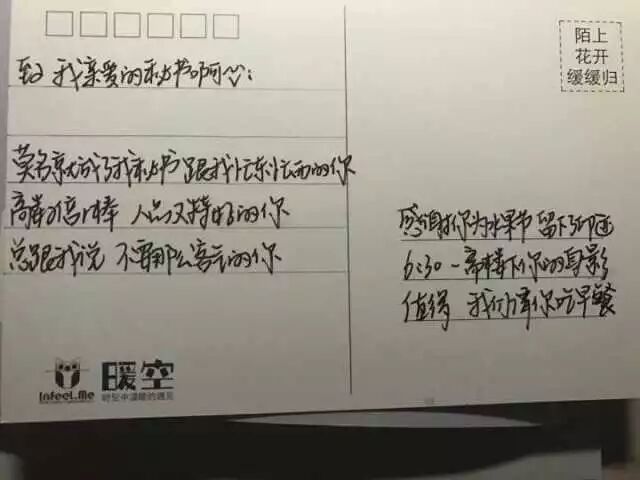 陌上
花开
缓缓归
致 我亲爱的秘书啊心:
莫名就成了我秘书 跟我忙东忙西的你
人品又特好的你
总跟我说 不要那么客气的你
感谢你为水果节 留下的
6:30 一宿楼下你的身影
值得 我们请你吃早餐
InfeeL.Me
暖空
时空中温暖的遇见